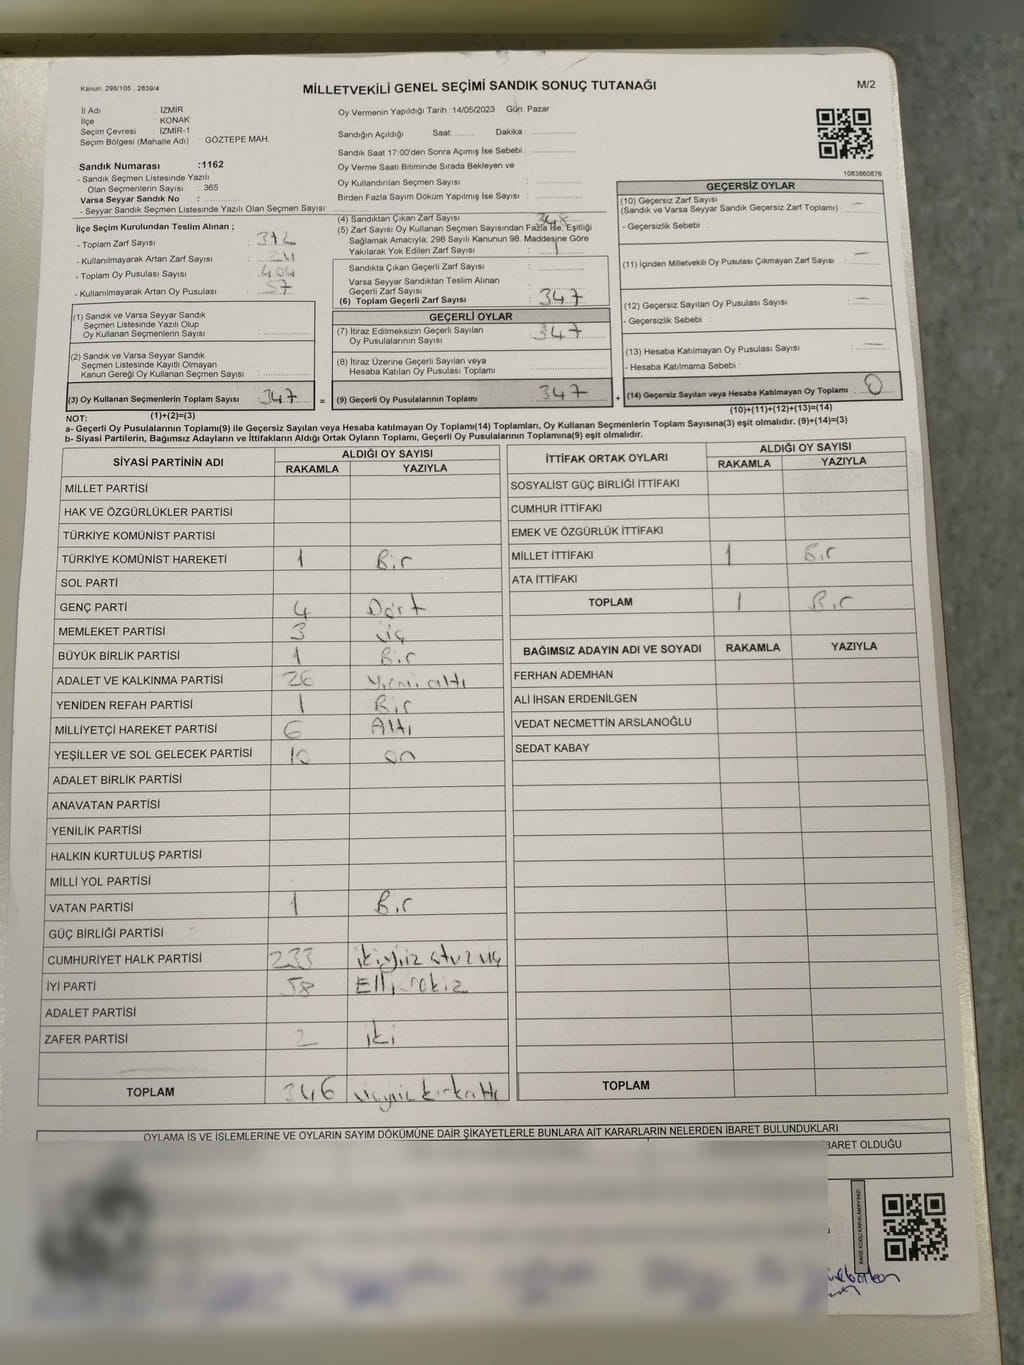 Kanun: 298/105 , 2839/4
MİLLETVEKİLİ GENEL SEÇİMİ SANDIK SONUÇ TUTANAĞI
M/2
İl Adı : İZMİR
İlçe : KONAK
Seçim Çevresi : İZMİR-1
Seçim Bölgesi (Mahalle Adı) GÖZTEPE MAH.
Sandık Numarası :1162
- Sandık Seçmen Listesinde Yazılı
Olan Seçmenlerin Sayısı : 365
Varsa Seyyar Sandık No :
- Seyyar Sandık Seçmen Listesinde Yazılı Olan Seçmen Sayısı :
Oy Vermenin Yapıldığı Tarih :14/05/2023 Gün: Pazar
Sandığın Açıldığı Saat: ........ Dakika : ................
Sandık Saat 17:00'den Sonra Açımış İse Sebebi : ................
Oy Verme Saati Bitiminde Sırada Bekleyen ve
Oy Kullandırılan Seçmen Sayısı : ................
Birden Fazla Sayım Döküm Yapılmış İse Sayısı : ................
1083860876
İlçe Seçim Kurulundan Teslim Alınan ;
- Toplam Zarf Sayısı :
- Kullanılmayarak Artan Zarf Sayısı :
- Toplam Oy Pusulası Sayısı : 404
- Kullanılmayarak Artan Oy Pusulası : 57
(1) Sandık ve Varsa Seyyar Sandık
Seçmen Listesinde Yazılı Olup
Oy Kullanan Seçmenlerin Sayısı :
(2) Sandık ve Varsa Seyyar Sandık
Seçmen Listesinde Kayıtlı Olmayan
Kanun Gereği Oy Kullanan Seçmen Sayısı :
(3) Oy Kullanan Seçmenlerin Toplam Sayısı : 347 =
(1)+(2)=(3)
(4) Sandıktan Çıkan Zarf Sayısı : 348
(5) Zarf Sayısı Oy Kullanan Seçmen Sayısından Fazla İse, Eşitliği
Sağlamak Amacıyla, 298 Sayılı Kanunun 98. Maddesine Göre
Yakılarak Yok Edilen Zarf Sayısı : 1
Sandıkta Çıkan Geçerli Zarf Sayısı :
Varsa Seyyar Sandıktan Teslim Alınan
Geçerli Zarf Sayısı :
(6) Toplam Geçerli Zarf Sayısı : 347
GEÇERLİ OYLAR
(7) İtiraz Edilmeksizin Geçerli Sayılan
Oy Pusulalarının Sayısı : 347
(8) İtiraz Üzerine Geçerli Sayılan veya
Hesaba Katılan Oy Pusulası Toplamı :
(9) Geçerli Oy Pusulalarının Toplamı : 347 +
GEÇERSİZ OYLAR
(10) Geçersiz Zarf Sayısı
(Sandık ve Varsa Seyyar Sandık Geçersiz Zarf Toplamı) : —
- Geçersizlik Sebebi :
(11) İçinden Milletvekili Oy Pusulası Çıkmayan Zarf Sayısı : —
(12) Geçersiz Sayılan Oy Pusulası Sayısı : —
- Geçersizlik Sebebi :
(13) Hesaba Katılmayan Oy Pusulası Sayısı : —
- Hesaba Katılmama Sebebi :
(14) Geçersiz Sayılan veya Hesaba Katılmayan Oy Toplamı : 0
(10)+(11)+(12)+(13)=(14)
NOT:
a- Geçerli Oy Pusulalarının Toplamı(9) ile Geçersiz Sayılan veya Hesaba katılmayan Oy Toplamı(14) Toplamları, Oy Kullanan Seçmenlerin Toplam Sayısına(3) eşit olmalıdır. (9)+(14)=(3)
b- Siyasi Partilerin, Bağımsız Adayların ve İttifakların Aldığı Ortak Oyların Toplamı, Geçerli Oy Pusulalarının Toplamına(9) eşit olmalıdır.
SİYASİ PARTİNİN ADI ALDIĞI OY SAYISI
RAKAMLA YAZIYLA
MİLLET PARTİSİ
HAK VE ÖZGÜRLÜKLER PARTİSİ
TÜRKİYE KOMÜNİST PARTİSİ
TÜRKİYE KOMÜNİST HAREKETİ 1 Bir
SOL PARTİ
GENÇ PARTİ 4 Dört
MEMLEKET PARTİSİ 3 üç
BÜYÜK BİRLİK PARTİSİ 1 Bir
ADALET VE KALKINMA PARTİSİ 26 Yirmi altı
YENİDEN REFAH PARTİSİ 1 Bir
MİLLİYETÇİ HAREKET PARTİSİ 6 Altı
YEŞİLLER VE SOL GELECEK PARTİSİ 10 on
ADALET BİRLİK PARTİSİ
ANAVATAN PARTİSİ
YENİLİK PARTİSİ
HALKIN KURTULUŞ PARTİSİ
MİLLİ YOL PARTİSİ
VATAN PARTİSİ 1 Bir
GÜÇ BİRLİĞİ PARTİSİ
CUMHURİYET HALK PARTİSİ 233 ikiyüz otuz üç
İYİ PARTİ 58 Elli sekiz
ADALET PARTİSİ
ZAFER PARTİSİ 2 iki
TOPLAM 346 üçyüz kırkaltı
İTTİFAK ORTAK OYLARI ALDIĞI OY SAYISI
RAKAMLA YAZIYLA
SOSYALİST GÜÇ BİRLİĞİ İTTİFAKI
CUMHUR İTTİFAKI
EMEK VE ÖZGÜRLÜK İTTİFAKI
MİLLET İTTİFAKI 1 Bir
ATA İTTİFAKI
TOPLAM 1 Bir
BAĞIMSIZ ADAYIN ADI VE SOYADI RAKAMLA YAZIYLA
FERHAN ADEMHAN
ALİ İHSAN ERDENİLGEN
VEDAT NECMETTİN ARSLANOĞLU
SEDAT KABAY
TOPLAM
OYLAMA İŞ VE İŞLEMLERİNE VE OYLARIN SAYIM DÖKÜMÜNE DAİR ŞİKAYETLERLE BUNLARA AİT KARARLARIN NELERDEN İBARET BULUNDUKLARI
BARET OLDUĞU
KARE KODU KARALAMAYINIZ!